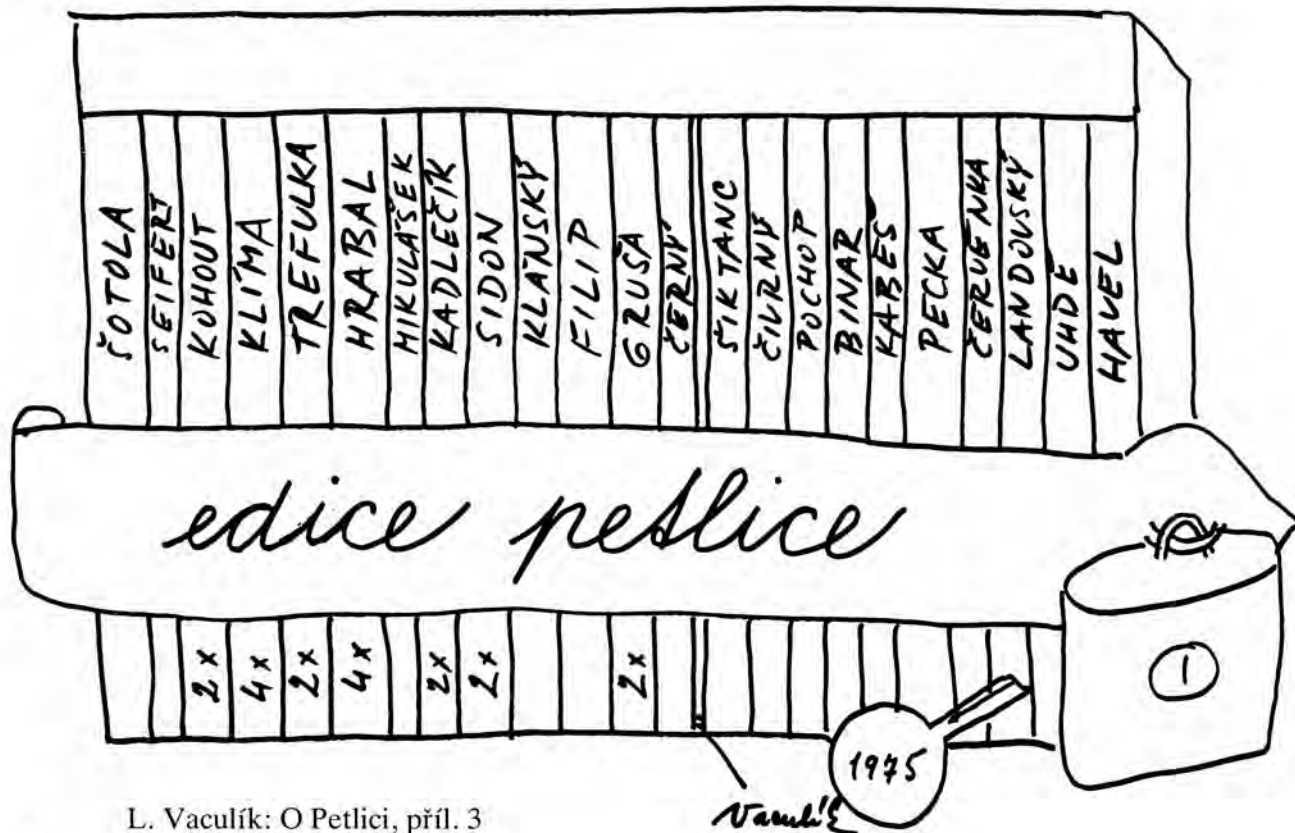 ŠOTOLA
SEIFERT
KOHOUT
KLÍMA
TREFULKA
HRABAL
MIKULÁŠEK
KADLEČÍK
SIDON
KLÁNSKÝ
FILIP
GRUŠA
ČERNÝ
ŠIKTANC
ČIVRNÝ
POCHOP
BINAR
KABEŠ
PECKA
ČERVENKA
LANDOVSKÝ
UHDE
HAVEL
edice petlice
2x
4x
2x
4x
2x
2x
2x
1975
L. Vaculík: O Petlici, příl. 3
Vaculík